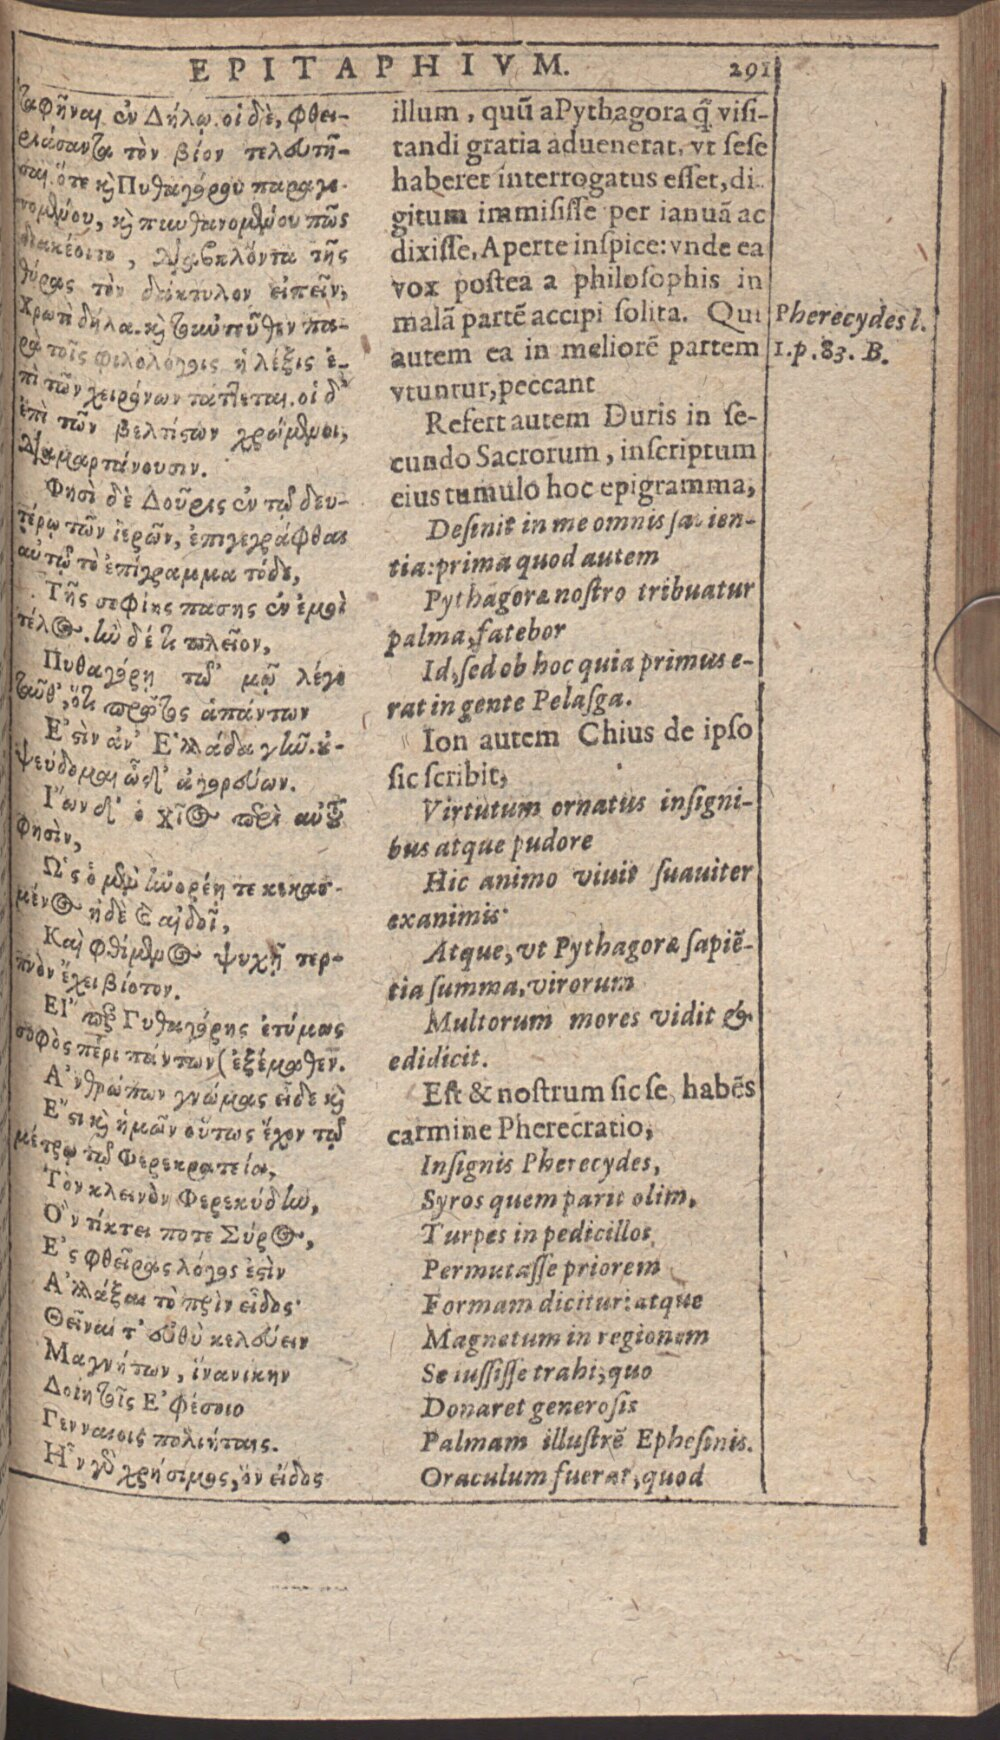 EPITAPHIVM. 291
ταφῆναι ἐν Δήλῳ. οἱ δὲ, φθει-
ριάσαντα τὸν βίον τελευτῆ-
σαι. ὅτε καὶ Πυθαγόρου παραγε-
νομένου, καὶ πυνθανομένου πῶς
διακέοιτο, διαβαλόντα τῆς
θύρας τὸν δάκτυλον εἰπεῖν,
Χροῒ δῆλα. καὶ τοὐντεῦθεν πα-
ρὰ τοῖς φιλολόγοις ἡ λέξις ἐ-
πὶ τῶν χειρόνων τάττεται. οἱ δ'
ἐπὶ τῶν βελτίστων χρώμενοι,
διαμαρτάνουσιν.
Φησὶ δὲ Δοῦρις ἐν τῷ δευ-
τέρῳ τῶν ἱερῶν, ἐπιγεγράφθαι
αὐτῷ τὸ ἐπίγραμμα τόδε,
Τῆς σοφίης πάσης ἐν ἐμοὶ
τέλος. ἢν δέ τι πλεῖον,
Πυθαγόρῃ τῷ' μῷ λέγε
ταῦθ', ὅτι πρῶτος ἁπάντων
Ἐστὶν ἀν' Ἑλλάδα γῆν. οὐ
ψεύδομαι ὧδ' ἀγορεύων.
Ἴων δ' ὁ Χῖος περὶ αὐτοῦ
φησὶν,
Ὣς ὁ μὲν ἠνορέῃ τε κεκασ-
μένος ἠδὲ καὶ αἰδοῖ,
Καὶ φθίμενος ψυχῇ τερ-
πνὸν ἔχει βίοτον.
Εἴπερ Πυθαγόρης ἐτύμως
σοφὸς περὶ πάντων ἐξέμαθεν.
Ἀνθρώπων γνώμας εἶδε καὶ
Ἔστι καὶ ἡμῶν οὕτως ἔχον τῷ
μέτρῳ τῷ Φερεκρατείῳ,
Τὸν κλεινὸν Φερεκύδην,
Ὃν τίκτει ποτε Σύρος,
Ἐς φθεῖρας λόγος ἐστὶν
Ἀλλάξαι τὸ πρὶν εἶδος·
Θεῖναί τ' εὐθὺ κελεύειν
Μαγνήτων, ἵνα νίκην
Δοίη τοῖς Ἐφέσοιο
Γενναίοις πολιήταις.
Ἦν γὰρ χρήσιμος, ὃν εἶδος
illum, quũ a Pythagora q̃ visi-
tandi gratia aduenerat, vt sese
haberet interrogatus esset, di-
gitum immisisse per ianuã ac
dixisse, Aperte inspice: vnde ea
vox postea a philosophis in
malã partẽ accipi solita. Qui
autem ea in meliorẽ partem
vtuntur, peccant
Refert autem Duris in se-
cundo Sacrorum, inscriptum
eius tumulo hoc epigramma,
Desinit in me omnis sapien-
tia: prima quod autem
Pythagoræ nostro tribuatur
palma, fatebor
Id, sed ob hoc quia primus e-
rat in gente Pelasga.
Ion autem Chius de ipso
sic scribit,
Virtutum ornatus insigni-
bus atque pudore
Hic animo viuit suauiter
exanimis·
Atque, vt Pythagoræ sapiẽ-
tia summa, virorum
Multorum mores vidit &
edidicit.
Est & nostrum sic se habẽs
carmine Pherecratio,
Insignis Pherecydes,
Syros quem parit olim,
Turpes in pedicillos
Permutasse priorem
Formam dicitur: atque
Magnetum in regionem
Se iussisse trahi, quo
Donaret generosis
Palmam illustrẽ Ephesinis.
Oraculum fuerat, quod
Pherecydes l.
1. p. 83. B.